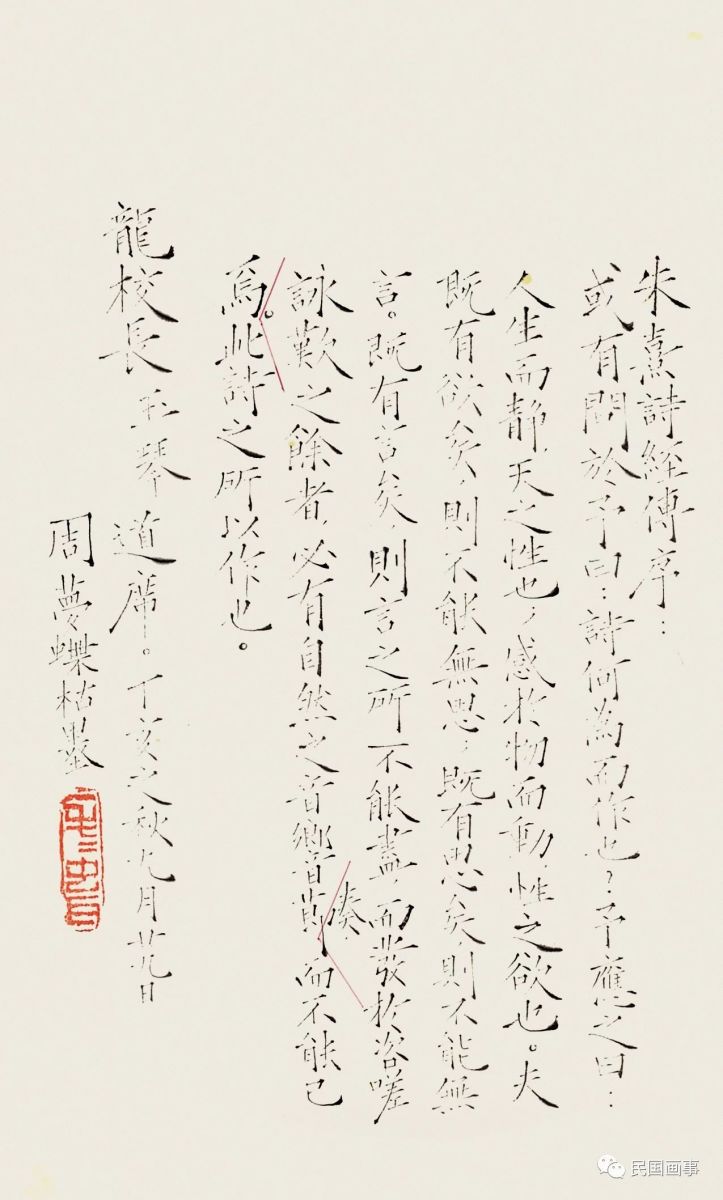 朱熹詩經傳序：
或有問於予曰：詩何為而作也？予應之曰：
人生而静，天之性也，感於物而動，性之欲也。夫
既有欲矣，則不能無思，既有思矣，則不能無
言。既有言矣，則言之所不能盡，而發於咨嗟
詠歎之餘者，必有自然之音響節凑，而不能已
焉。此詩之所以作也。
龍校長玉琴道席。丁亥之秋九月廿九日
周夢蝶枯墨
民国画事